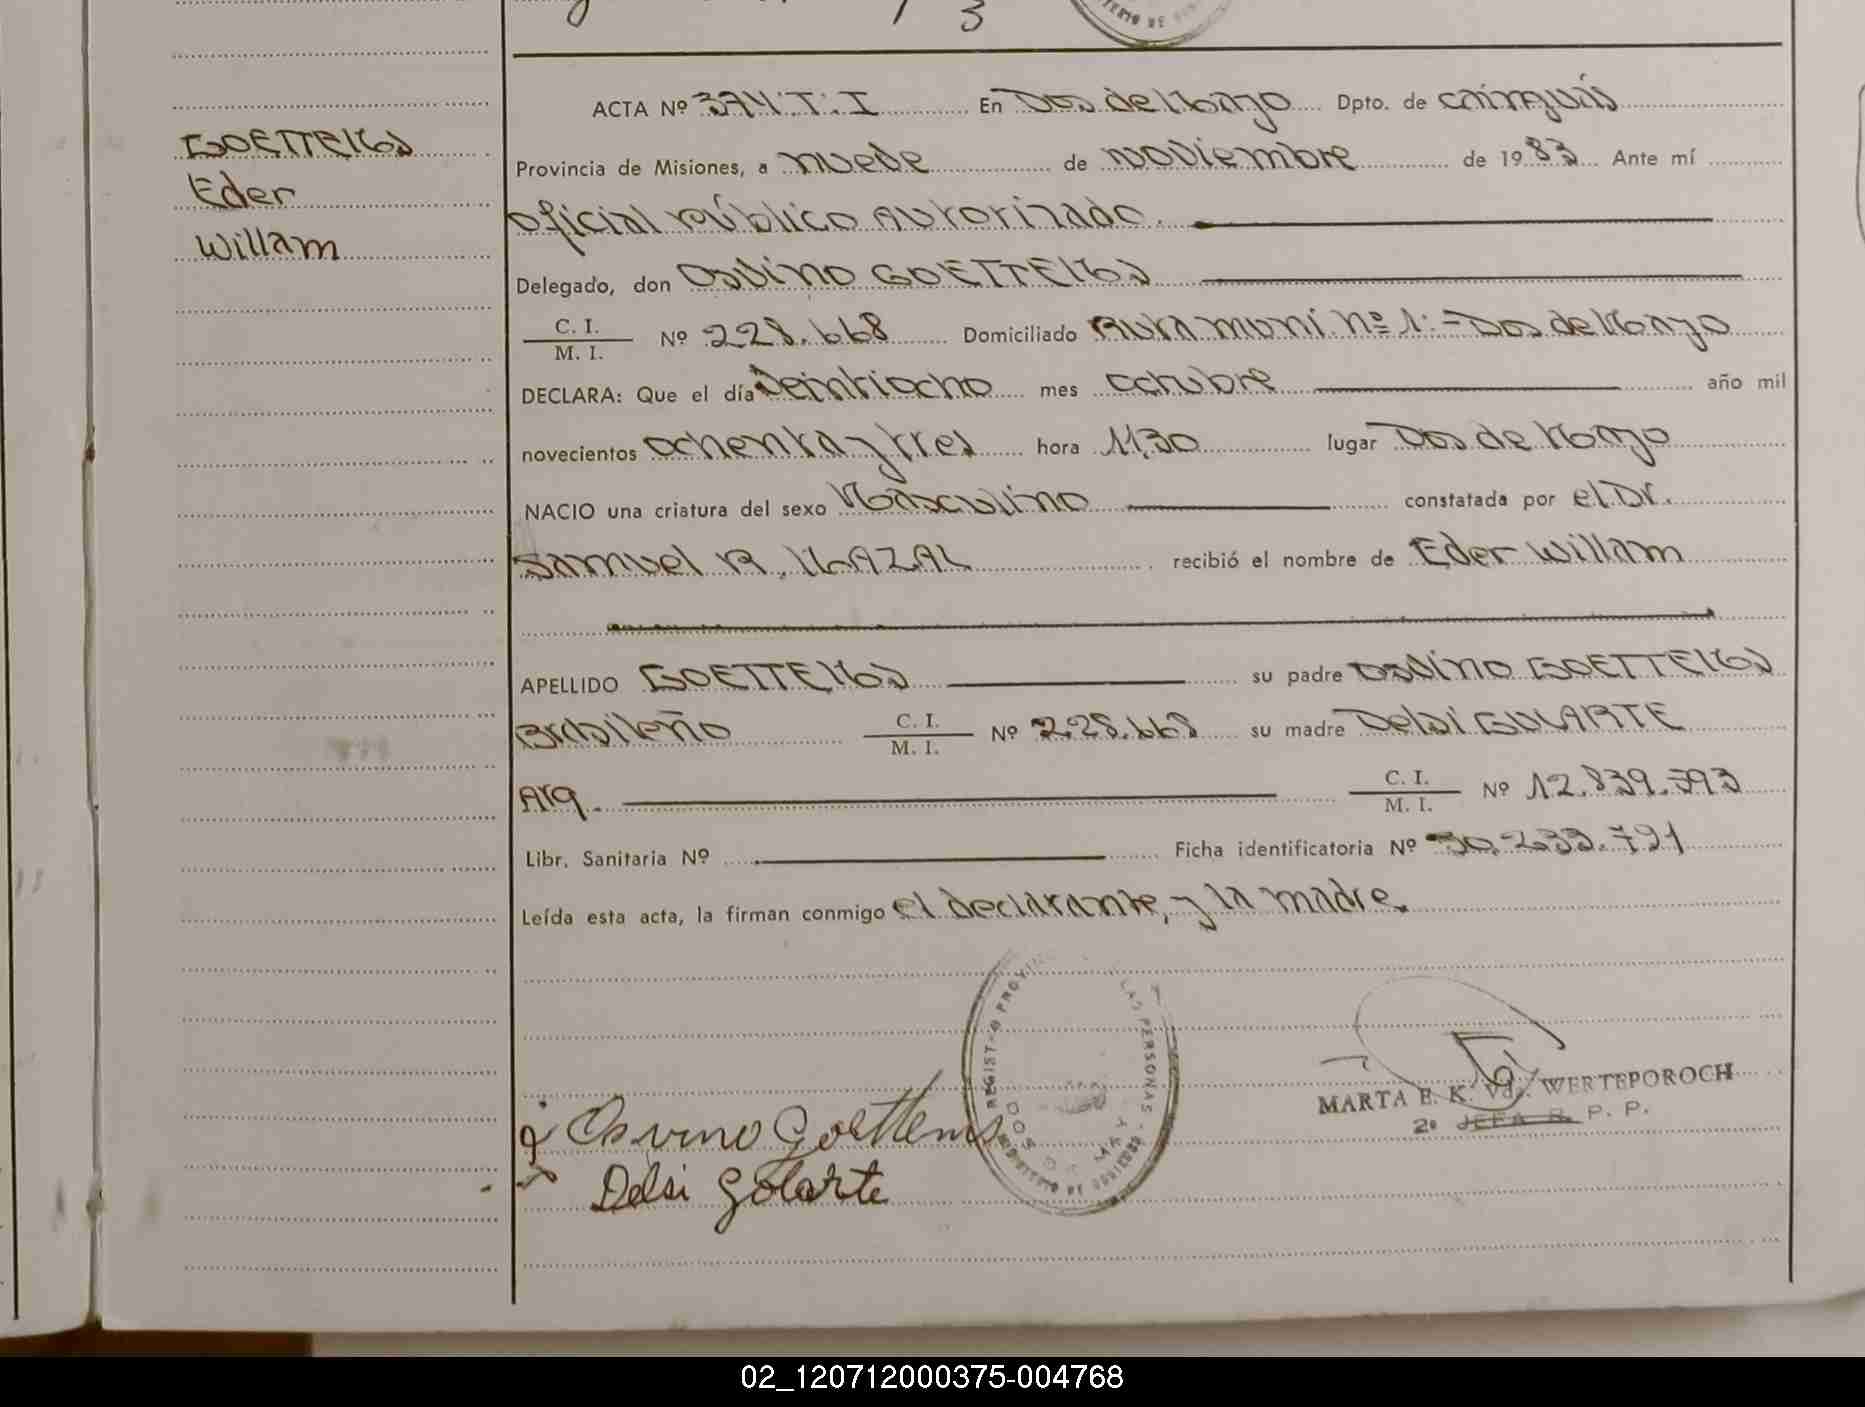 GOETTEMS
Eder
Willam
ACTA Nº 374.T.I En Dos de Mayo Dpto. de Cainguás
Provincia de Misiones, a nueve de noviembre de 1983 Ante mí
Oficial Público Autorizado.
Delegado, don Osvino GOETTEMS
C. I.
M. I.
Nº 228.668 Domiciliado Ruta muni. nº 1.=Dos de Mayo
DECLARA: Que el día veintiocho mes octubre año mil
novecientos ochenta y tres hora 11,30 lugar Dos de Mayo
NACIO una criatura del sexo Masculino constatada por el Dr.
Samuel R. MAZAL recibió el nombre de Eder Willam
APELLIDO GOETTEMS su padre Osvino GOETTEMS
Brasileño C. I. M. I. Nº 228.668 su madre Delsi GULARTE
Arg. C. I. M. I. Nº 12.839.593
Libr. Sanitaria Nº Ficha identificatoria Nº 30.233.791
Leída esta acta, la firman conmigo el declarante, y la madre.
REGIST O PROV LAS PERSONAS
MINISTERIO DE GOBIERNO
Osvino Goettems
Delsi Golarte
MARTA E. K. Vda. WERTEPOROCH
2º JEFA R. P. P.
02_120712000375-004768